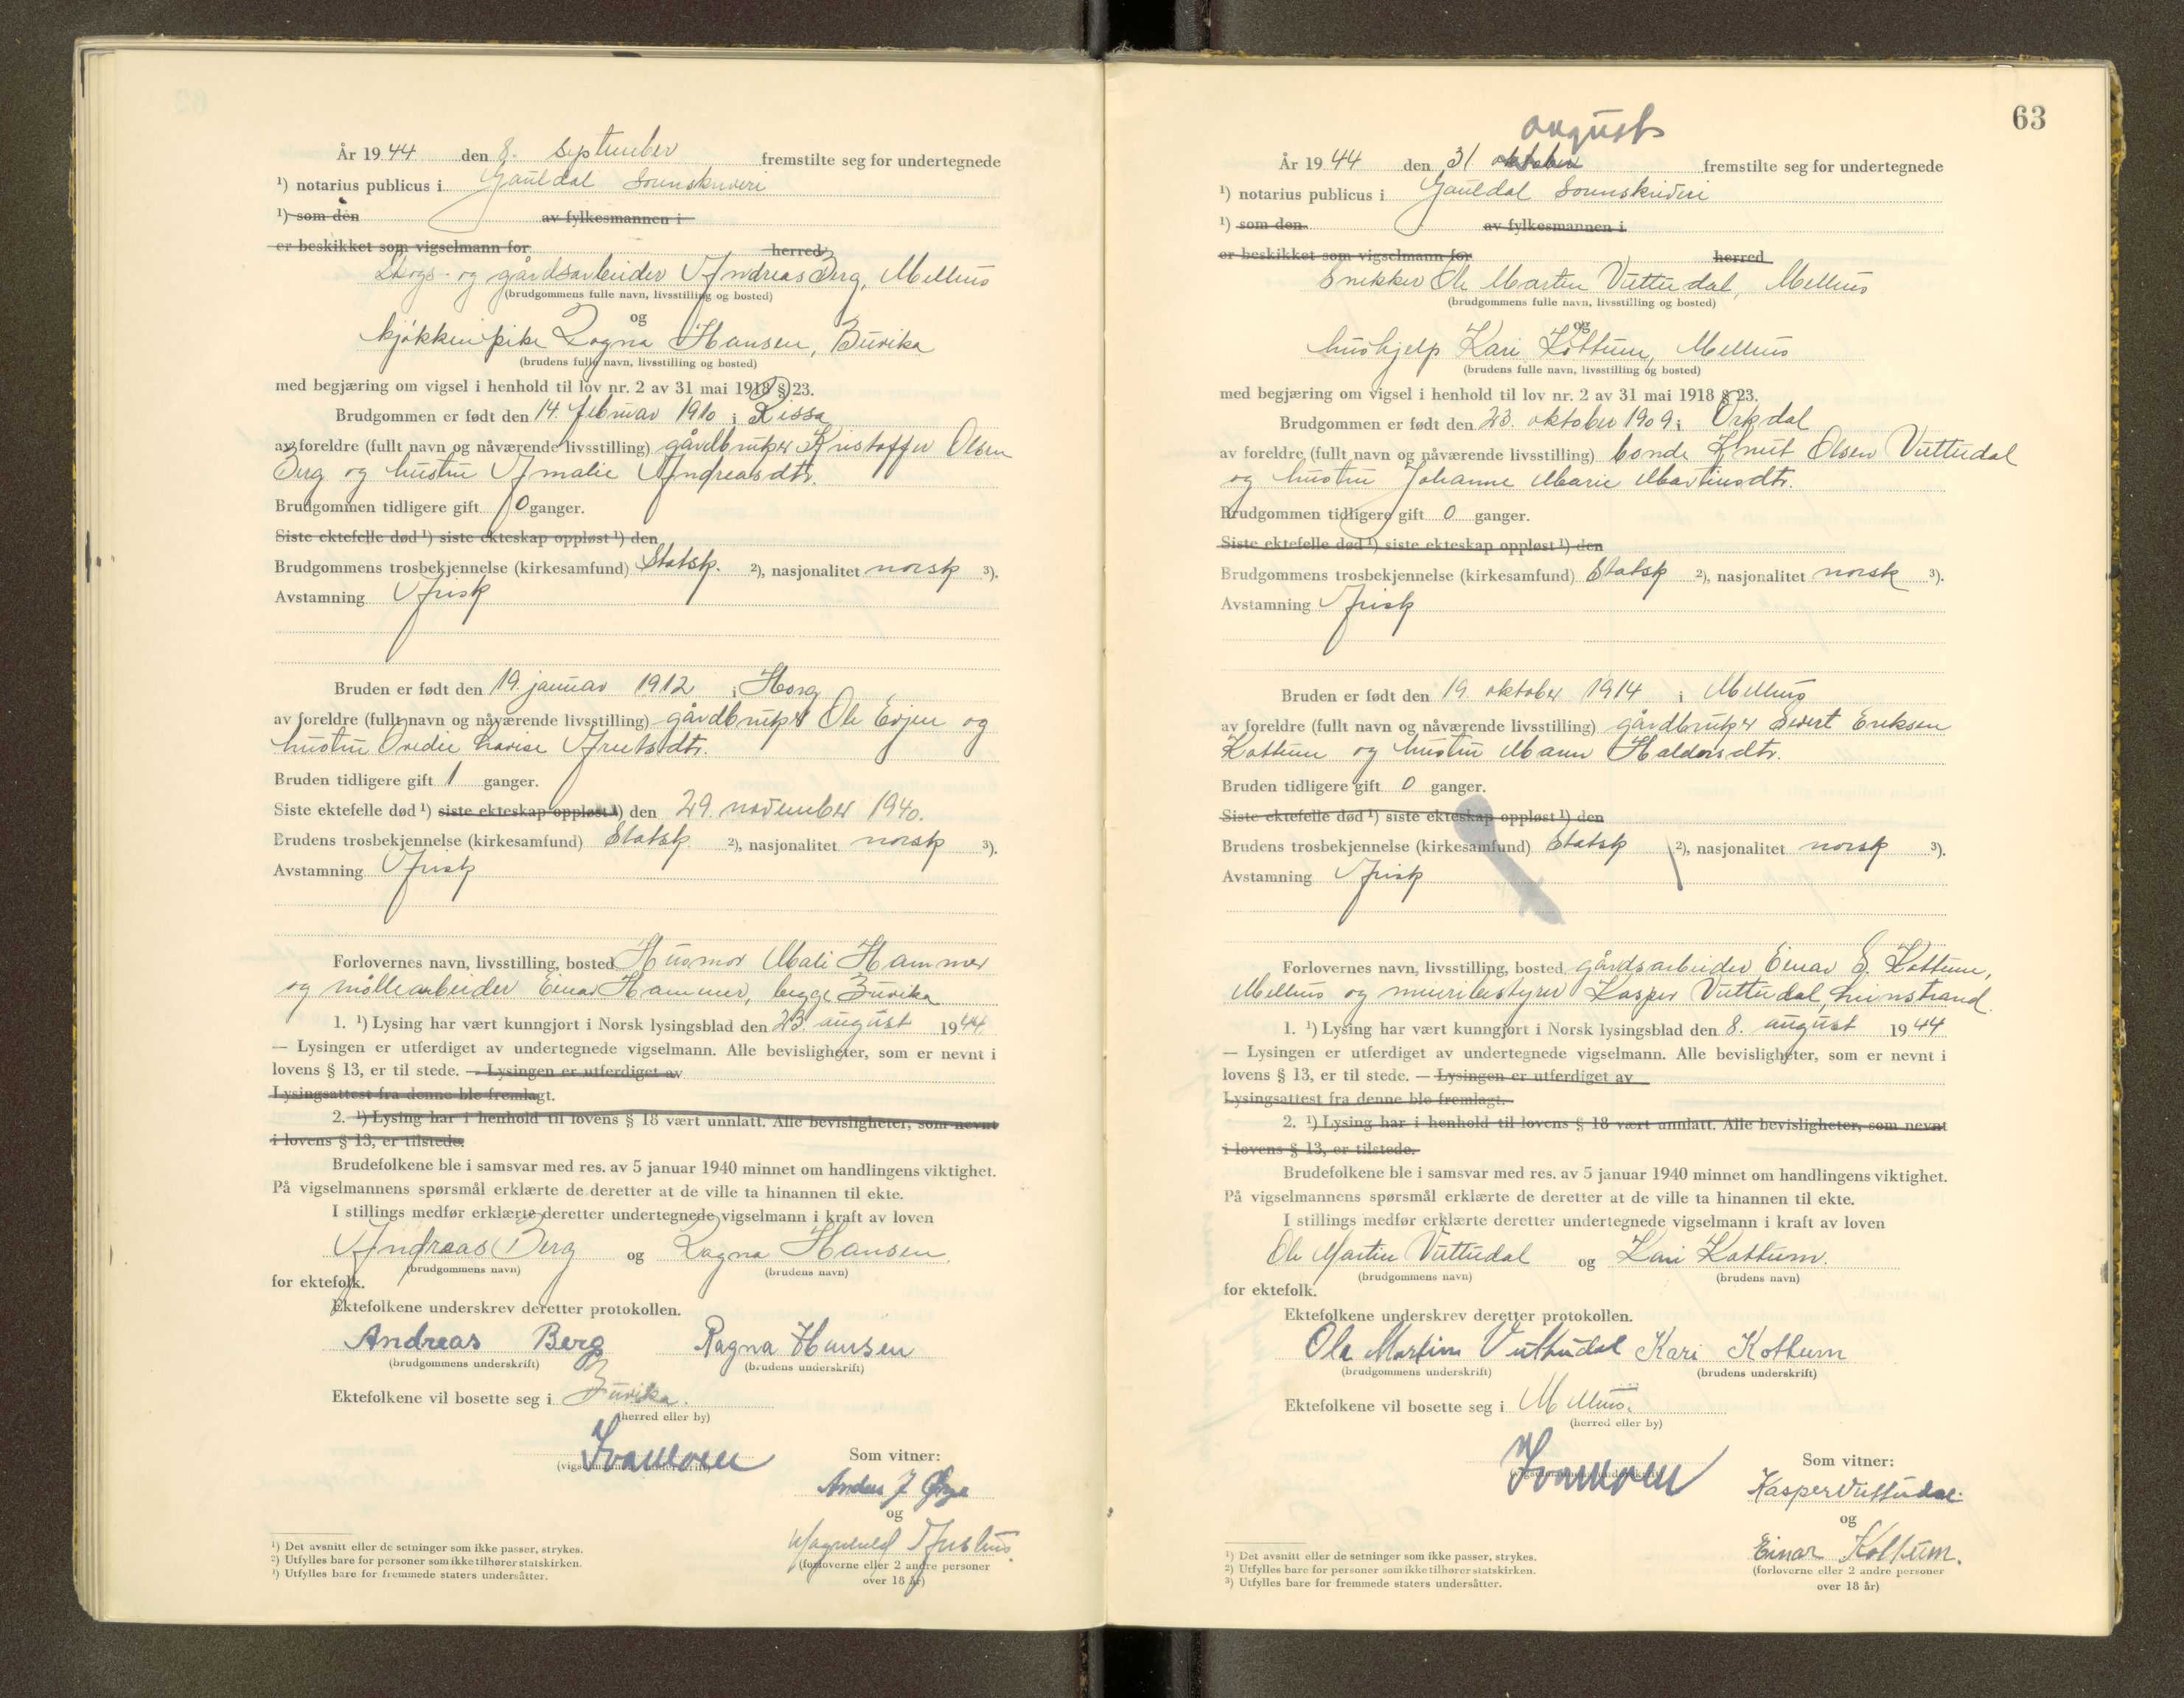 År 19 44 den 8. september fremstilte seg for undertegnede
¹) notarius publicus i Gauldal Sorenskriveri
¹) som den av fylkesmannen i
er beskikket som vigselmann for herred
Skogs- og gårdsarbeider Andreas Berg, Melhus
(brudgommens fulle navn, livsstilling og bosted)
og
kjøkkenpike Ragna Hansen, Buvika
(brudens fulle navn, livsstilling og bosted)
med begjæring om vigsel i henhold til lov nr. 2 av 31 mai 1918 § 23.
Brudgommen er født den 14. februar 1910 i Rissa
av foreldre (fullt navn og nåværende livsstilling) gårdbruker Kristoffer Olsen
Berg og hustru Amalie Andreasdtr.
Brudgommen tidligere gift 0 ganger.
Siste ektefelle død ¹) siste ekteskap oppløst ¹) den
Brudgommens trosbekjennelse (kirkesamfund) Statsk. ²), nasjonalitet norsk ³).
Avstamning Arisk
Bruden er født den 19. januar 1912 i Horg
av foreldre (fullt navn og nåværende livsstilling) gårdbruker Ole Evjen og
hustru Ovedie Lovise
Bruden tidligere gift 1 ganger.
Siste ektefelle død ¹) siste ekteskap oppløst ¹) den 29. november 1940.
Brudens trosbekjennelse (kirkesamfund) Statsk. ²), nasjonalitet norsk ³).
Avstamning Arisk
Forlovernes navn, livsstilling, bosted Husmor Mali Hammer
og møllearbeider Einar Hammer, begge Buvika
1. ¹) Lysing har vært kunngjort i Norsk lysingsblad den 23. august 1944
— Lysingen er utferdiget av undertegnede vigselmann. Alle bevisligheter, som er nevnt i
lovens § 13, er til stede. — Lysingen er utferdiget av
Lysingsattest fra denne ble fremlagt.
2. ¹) Lysing har i henhold til lovens § 18 vært unnlatt. Alle bevisligheter, som nevnt
i lovens § 13, er tilstede.
Brudefolkene ble i samsvar med res. av 5 januar 1940 minnet om handlingens viktighet.
På vigselmannens spørsmål erklærte de deretter at de ville ta hinannen til ekte.
I stillings medfør erklærte deretter undertegnede vigselmann i kraft av loven
Andreas Berg og Ragna Hansen.
(brudgommens navn) (brudens navn)
for ektefolk.
Ektefolkene underskrev deretter protokollen.
Andreas Berg Ragna Hansen
(brudgommens underskrift) (brudens underskrift)
Ektefolkene vil bosette seg i Buvika.
(herred eller by)
(vigselmannens underskrift)
Som vitner:
Anders J
og
Magnhild
(forloverne eller 2 andre personer
over 18 år)
¹) Det avsnitt eller de setninger som ikke passer, strykes.
²) Utfylles bare for personer som ikke tilhører statskirken.
³) Utfylles bare for fremmede staters undersåtter.
63
august
År 19 44 den 31. oktober fremstilte seg for undertegnede
¹) notarius publicus i Gauldal Sorenskriveri
¹) som den av fylkesmannen i
er beskikket som vigselmann for herred
Snekker Ole Martin Vuttudal, Melhus
(brudgommens fulle navn, livsstilling og bosted)
og
hushjelp Kari Kottum, Melhus
(brudens fulle navn, livsstilling og bosted)
med begjæring om vigsel i henhold til lov nr. 2 av 31 mai 1918 § 23.
Brudgommen er født den 23. oktober 1909 i Orkdal
av foreldre (fullt navn og nåværende livsstilling) bonde Knut Olsen Vuttudal
og hustru Johanne Marie Martinsdtr.
Brudgommen tidligere gift 0 ganger.
Siste ektefelle død ¹) siste ekteskap oppløst ¹) den
Brudgommens trosbekjennelse (kirkesamfund) Statsk ²), nasjonalitet norsk ³).
Avstamning Arisk
Bruden er født den 19. oktober 1914 i Melhus
av foreldre (fullt navn og nåværende livsstilling) gårdbruker Sivert Eriksen
Kottum og hustru Haldorsdtr.
Bruden tidligere gift 0 ganger.
Siste ektefelle død ¹) siste ekteskap oppløst ¹) den
Brudens trosbekjennelse (kirkesamfund) Statsk ²), nasjonalitet norsk ³).
Avstamning Arisk
Forlovernes navn, livsstilling, bosted gårdsarbeider Einar S. Kottum,
Melhus og meieribestyrer Kasper Vuttudal, Leinstrand.
1. ¹) Lysing har vært kunngjort i Norsk lysingsblad den 8. august 1944
— Lysingen er utferdiget av undertegnede vigselmann. Alle bevisligheter, som er nevnt i
lovens § 13, er til stede. — Lysingen er utferdiget av
Lysingsattest fra denne ble fremlagt.
2. ¹) Lysing har i henhold til lovens § 18 vært unnlatt. Alle bevisligheter, som nevnt
i lovens § 13, er tilstede.
Brudefolkene ble i samsvar med res. av 5 januar 1940 minnet om handlingens viktighet.
På vigselmannens spørsmål erklærte de deretter at de ville ta hinannen til ekte.
I stillings medfør erklærte deretter undertegnede vigselmann i kraft av loven
Ole Martin Vuttudal og Kari Kottum.
(brudgommens navn) (brudens navn)
for ektefolk.
Ektefolkene underskrev deretter protokollen.
Ole Martin Vuttudal Kari Kottum
(brudgommens underskrift) (brudens underskrift)
Ektefolkene vil bosette seg i Melhus.
(herred eller by)
(vigselmannens underskrift)
Som vitner:
Kasper Vuttudal.
og
Einar Kottum.
(forloverne eller 2 andre personer
over 18 år)
¹) Det avsnitt eller de setninger som ikke passer, strykes.
²) Utfylles bare for personer som ikke tilhører statskirken.
³) Utfylles bare for fremmede staters undersåtter.